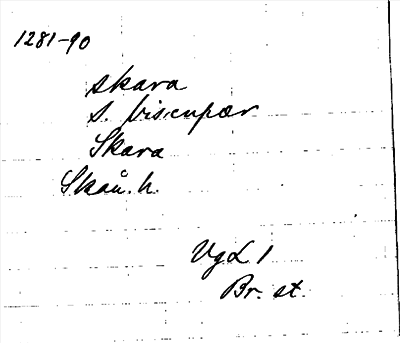 1281-90
skara
s. biscupær
Skara
Skån. h.
VgL 1
Br. st.